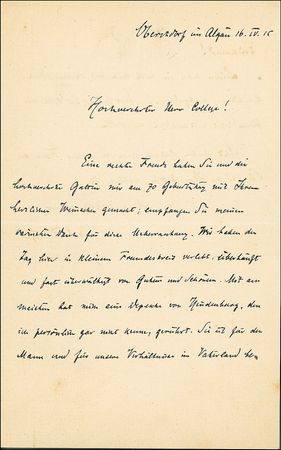 Oberstdorf im Algäu 16.IV.15
Hochverehrter Herr College!
Eine rechte Freude haben Sie und die
hochverehrte Gattin mir am 70 Geburtstag mit Ihren
herzlichen Wünschen gemacht; empfangen Sie meinen
wärmsten Dank für diese Ueberraschung. Wir haben den
Tag hier in kleinem Freundeskreis verlebt, überhäuft
und fast überwältigt von Gutem und Schönem. Mit am
meisten hat mich eine Depesche von Hindenburg, den
ich persönlich gar nicht kenne, gerührt. Sie ist für den
Mann und für unsere Verhältnisse im Vaterland be-